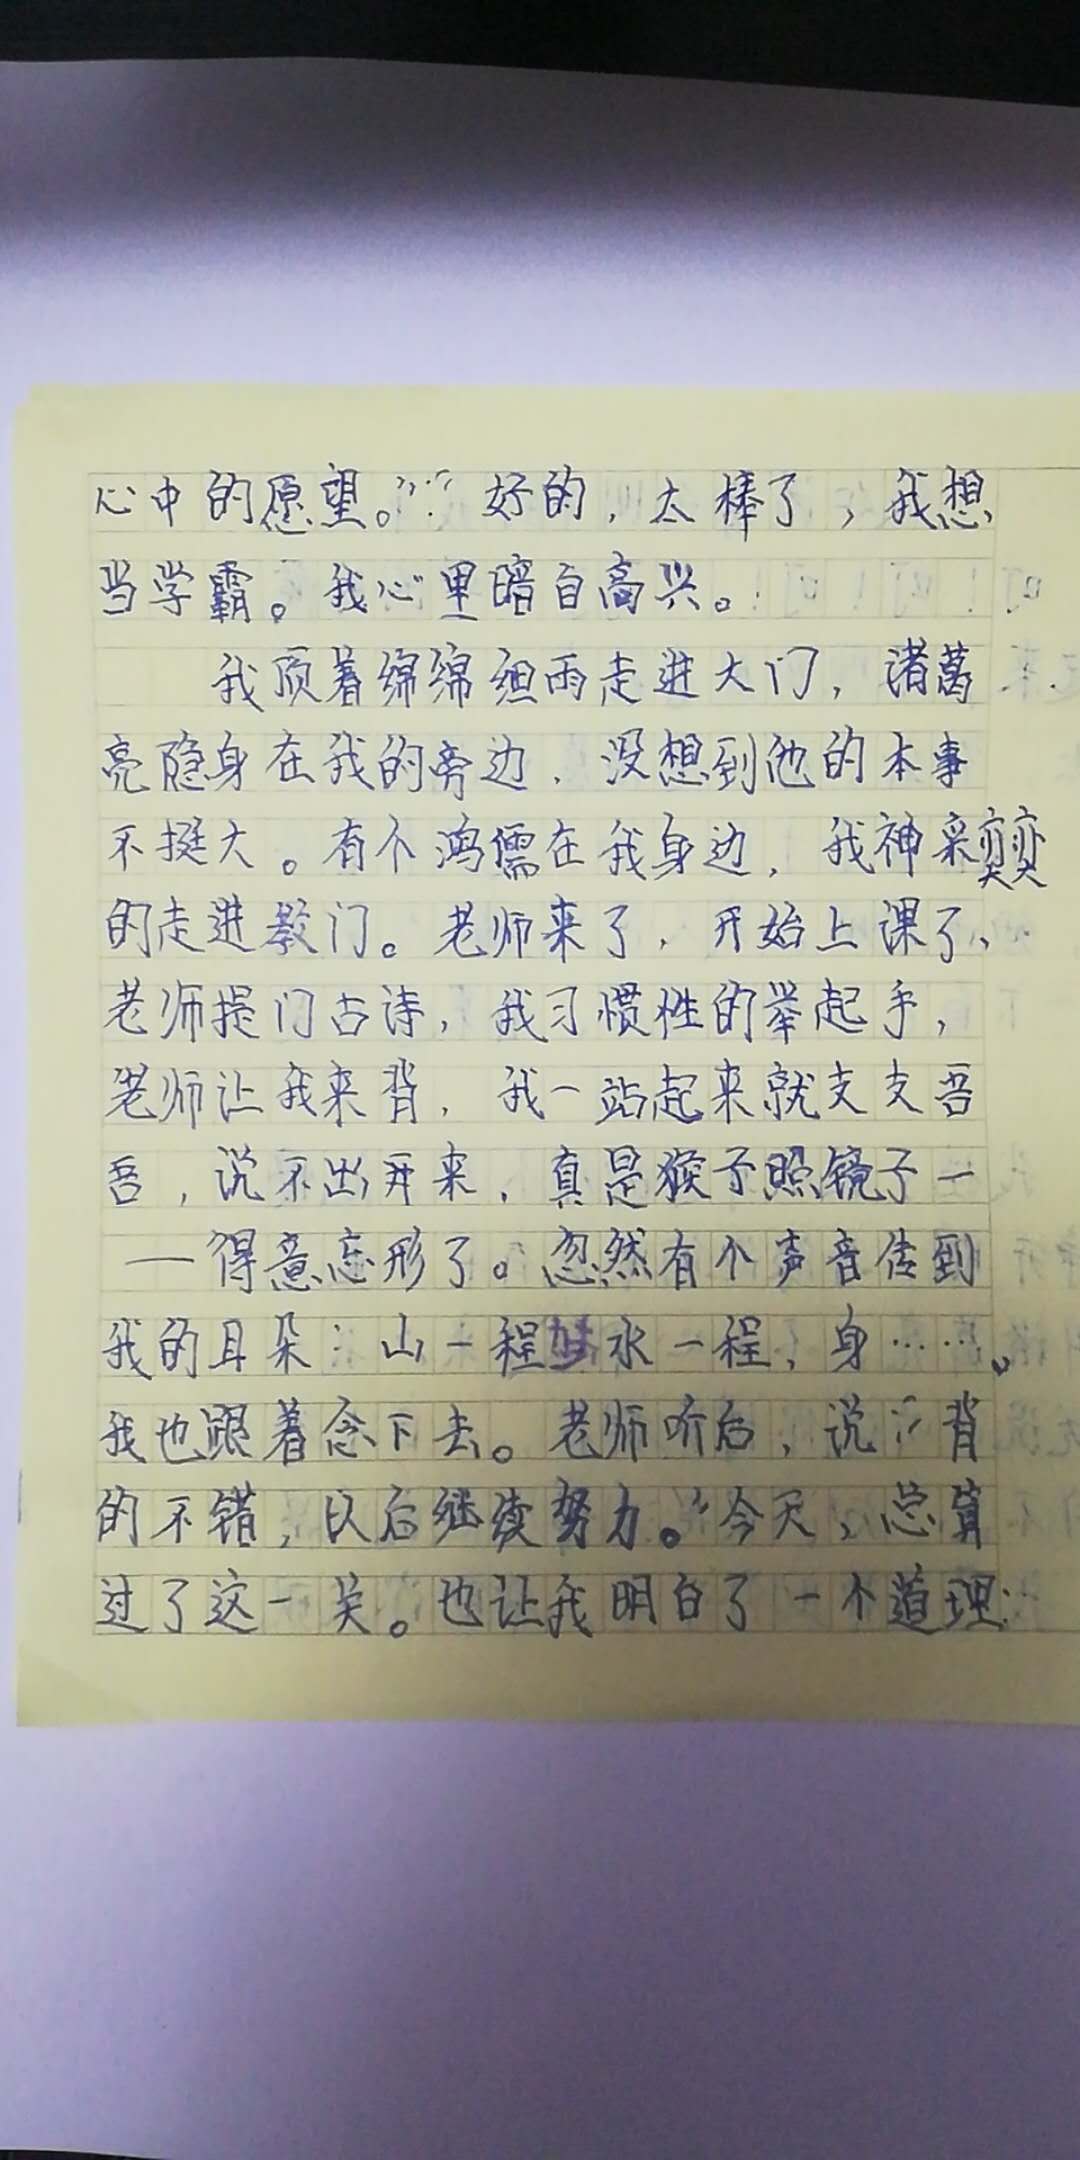 心中的愿望。”“好的，太棒了，我想
当学霸。我心里暗自高兴。
我顶着绵绵细雨走进大门，诸葛
亮隐身在我的旁边，没想到他的本事
不挺大。有个鸿儒在我身边，我神采奕奕
的走进教门。老师来了，开始上课了、
老师提门古诗，我习惯性的举起手，
老师让我来背，我一站起来就支支吾
吾，说不出开来，真是猴子照镜子一
一得意忘形了。忽然有个声音传到
我的耳朵：山一程水一程，身……。
我也跟着念下去。老师听后，说：“背
的不错，以后继续努力。”今天，总算
过了这一关。也让我明白了一个道理：